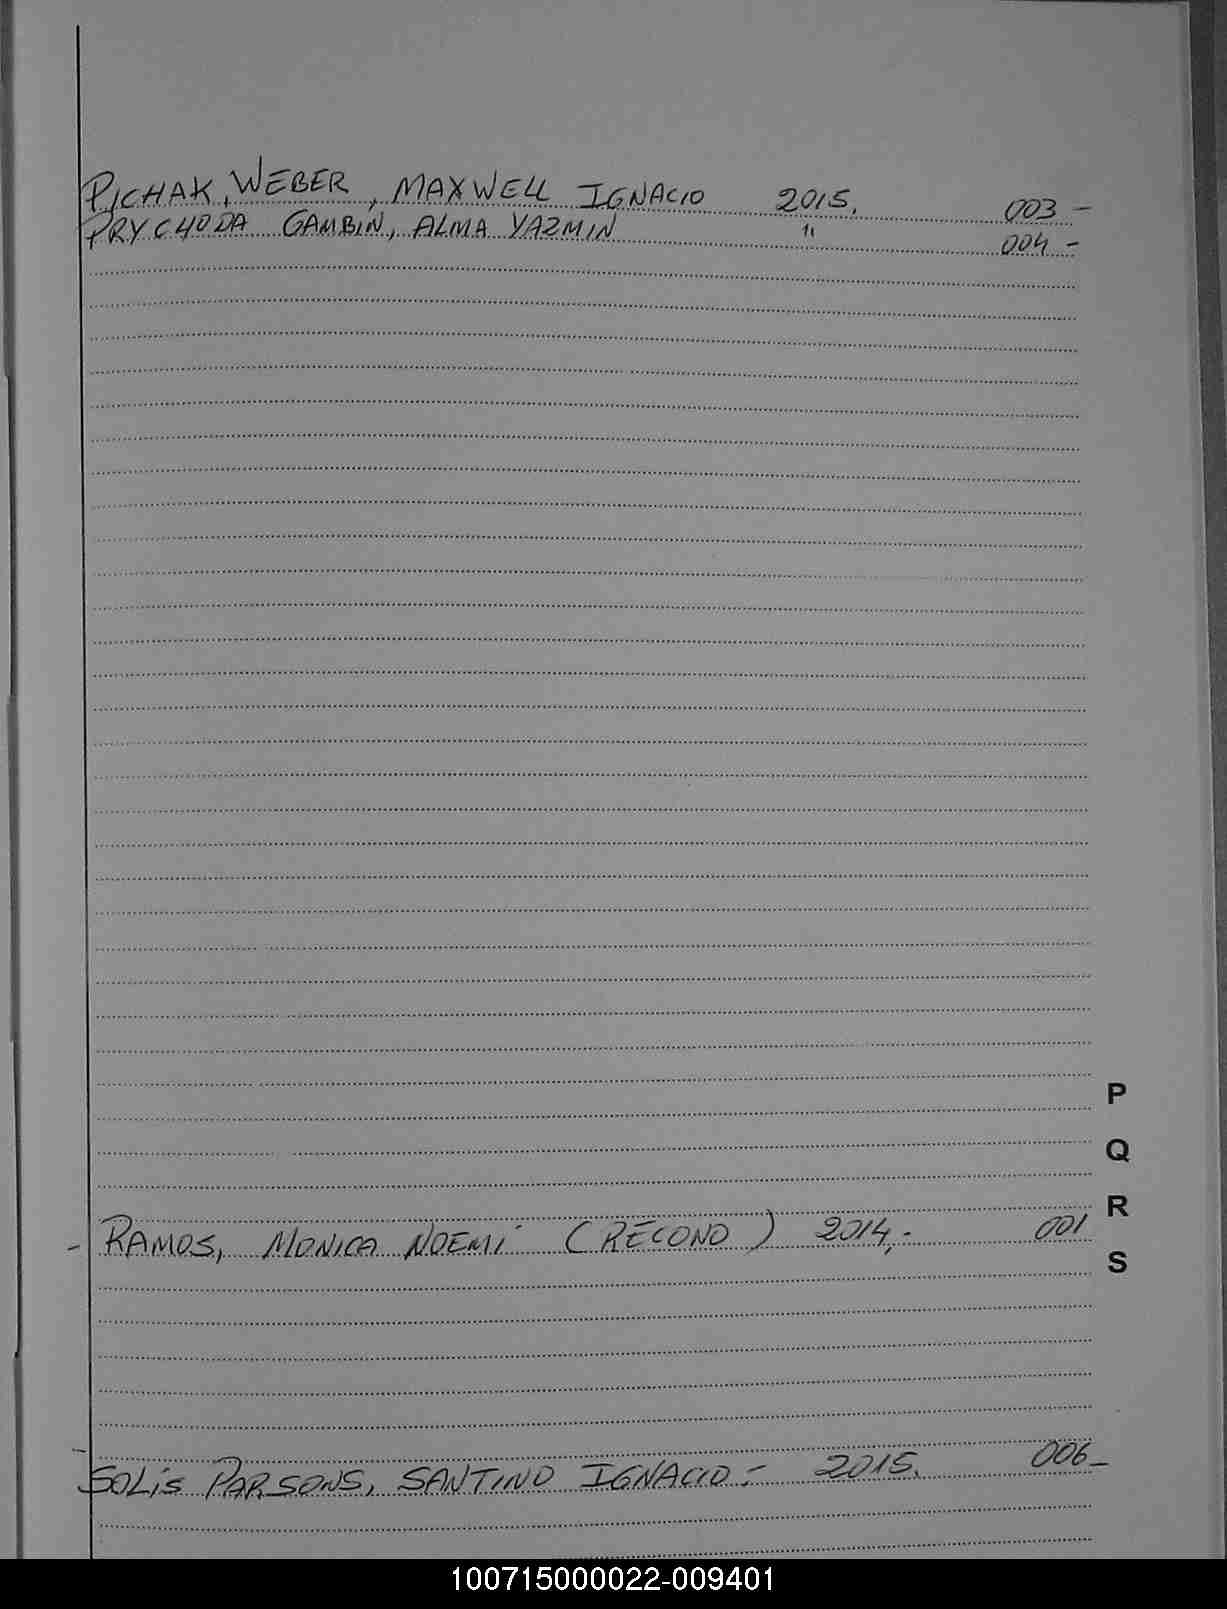 PICHAK, WEBER, MAXWELL IGNACIO 2015. 003 -
PRYCHODA GAMBIN, ALMA YAZMIN " 004 -
P
Q
R
- RAMOS, MONICA NOEMI (RECONO) 2014.- 001
S
- SOLIS PARSONS, SANTINO IGNACIO.- 2015. 006-
100715000022-009401